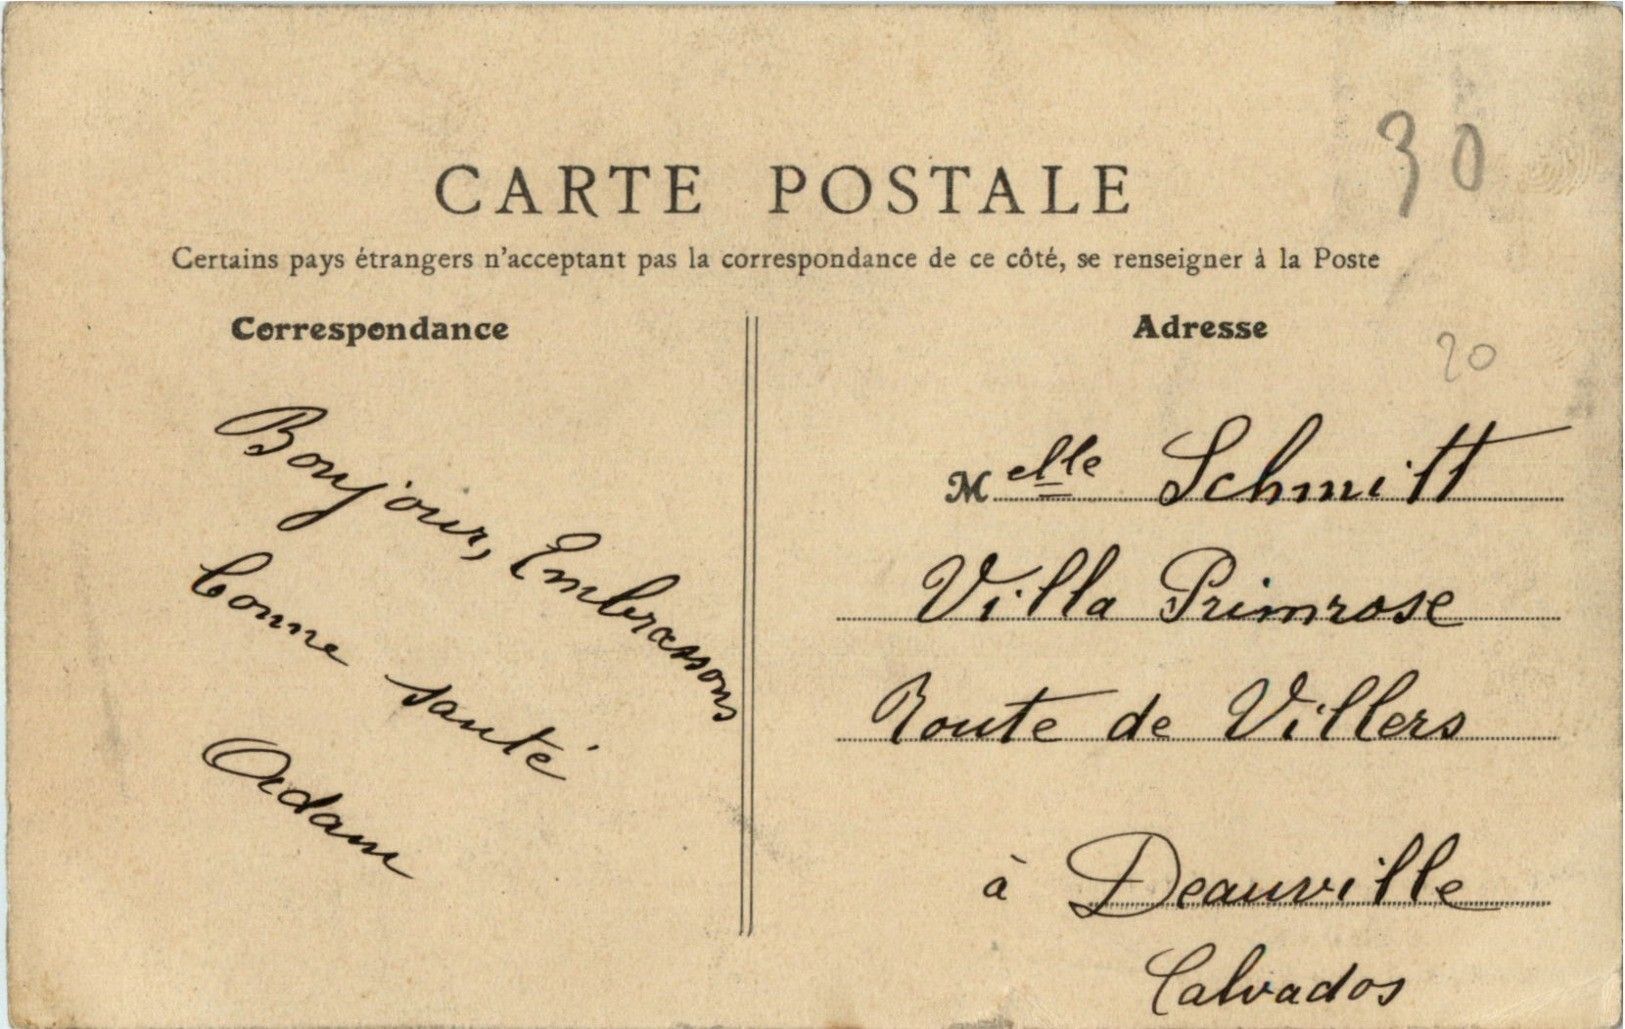 30
CARTE POSTALE
Certains pays étrangers n'acceptant pas la correspondance de ce côté, se renseigner à la Poste
Correspondance
Bonjour, Embrassons
bonne santé
Adam
Adresse
20
Melle Schmitt
Villa Primrose
Route de Villers
à Deauville
Calvados